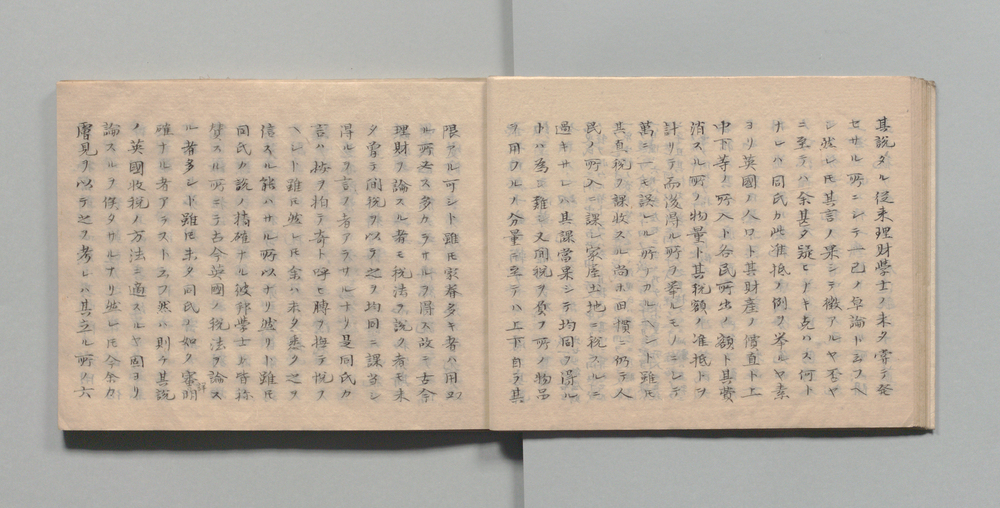 其說タル従来理財學士ノ未タ嘗テ発
セサル所ニシテ一己ノ卓論ト云フヘ
シ然レ𪜈其言ノ果シテ徴アルヤ否ヤ
ニ至テハ余甚タ疑ヒナキ克ハス何ト
ナレハ同氏カ此准抵ノ例ヲ挙ルヤ素
ヨリ英國ノ人口ト其財産ノ価直ト上
中下等ノ所入ト各民所出ノ額ト其費
消スル所ノ物量ト其税額ノ准抵トヲ
計リテ而後得ル所ヲ挙ルモノニシテ
萬ニ一モ誤ヒル所ナカルヘシト雖𪜈
其直税ヲ課收スル尚ホ田積ニ仍テ人
民ノ所入ニ課シ家産土地ニ税スルニ
過キサレハ其課當果シテ均同ヲ得ル
トハ為シ難シ又间税ヲ負フ所ノ物品
ヲ用フルノ分量ニ至テハ上下自ラ其
限アル可シト雖𪜈家眷多キ者ハ用
ル所必ス多カラサルヲ得ス故ニ古今
理財ヲ論スル者モ税法ヲ説ク者モ未
タ曾テ间税ヲ以テ之ヲ均同ニ課當シ
得ルヲ言ノ者アラサルナリ是同氏カ
言ハ掖ヲ拍テ奇ト呼ヒ髀ヲ撫テ悦フ
ヘシト雖𪜈然レ𪜈余ハ未タ悉ク之ヲ
信スル能ハサル所以ナリ然リト雖𪜈
同氏ノ説ノ精確ナル彼邦學士ノ皆称
賛スル所ニテ古今英國ノ税法ヲ論ス
ル者多シト雖𪜈未タ同氏ノ如ク審明
詳
確ナル者アラスト云フ然ハ則チ其説
ノ英國收税ノ方法ニ適スルヤ固ヨリ
論スルヲ俟タサルナリ然レ𪜈今余カ
庸見ヲ以テ之ヲ考レハ其立ル所ノ六